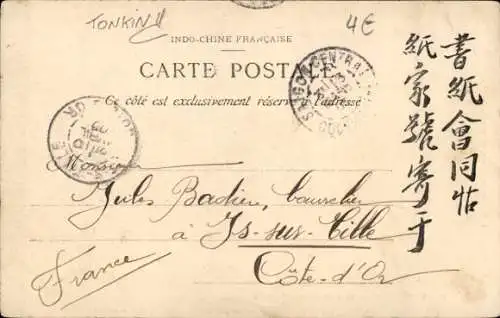 TONKIN
4€
INDO-CHINE FRANÇAISE
CARTE POSTALE
Ce côté est exclusivement réservé à l'adresse
SAIGON CENTRAL
CÔTE D'OR
Monsieur
Jules Badien, bourrelier
à Is-sur-Tille
Côte-d'Or
France
書紙會同帖
紙家號寄于